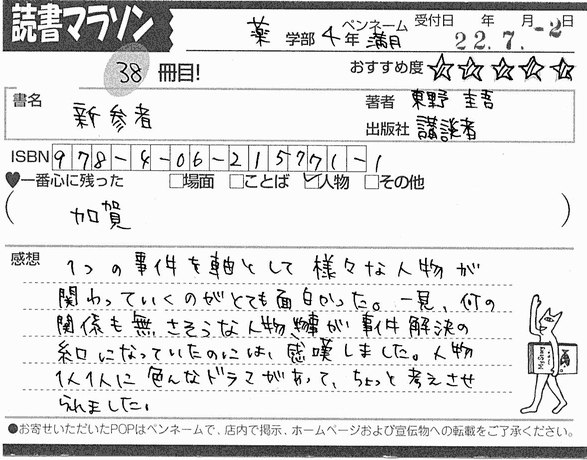 読書マラソン
薬 学部 4年 ペンネーム 満月 受付日 年 月 日
22.7.-2
38 冊目! おすすめ度 ☆☆☆☆☆
書名 新参者
著者 東野 圭吾
出版社 講談者
ISBN 978-4-06-215771-1
♥一番心に残った □場面 □ことば ☑人物 □その他
( 加賀 )
感想 1つの事件を軸として様々な人物が
関わっていくのがとても面白かった。一見、何の
関係も無さそうな人物、物事が事件解決の
糸口になっていたのには、感嘆しました。人物
1人1人に色んなドラマがあって、ちょっと考えさせ
られました。
●お寄せいただいたPOPはペンネームで、店内で掲示、ホームページおよび宣伝物への転載をご了承ください。